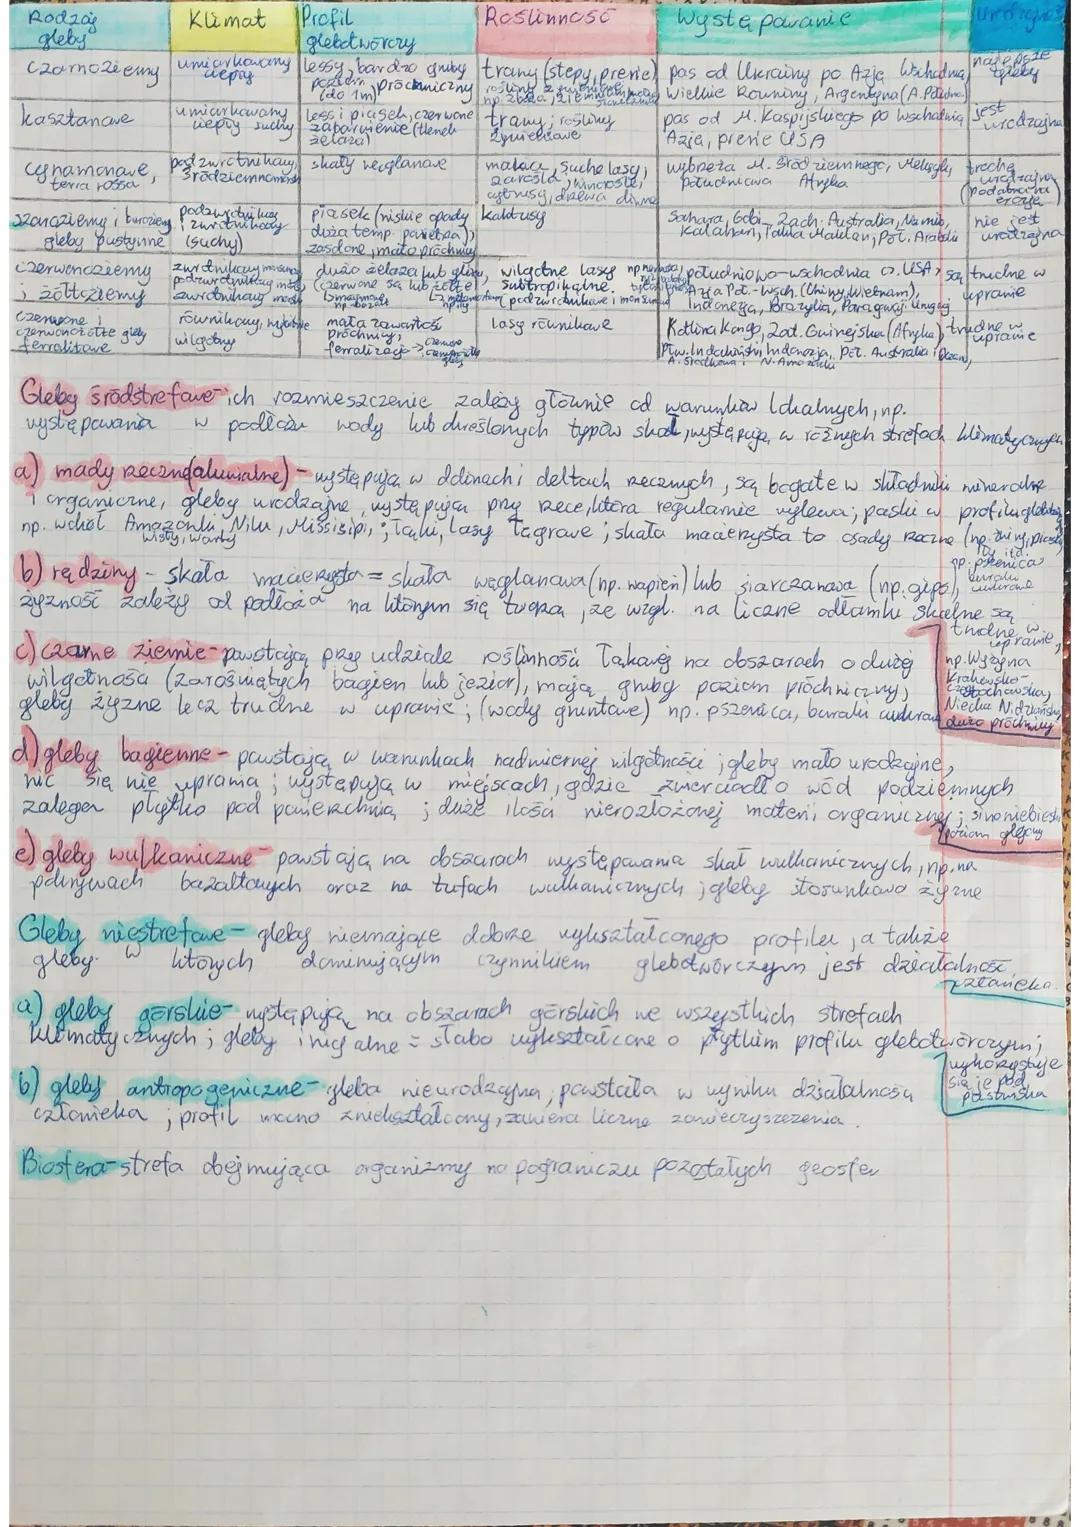 Rodzaj gleby | Klimat | Profil glebotwórczy | Roślinność | Występowanie
czarnoziemy | umiarkowany ciepły | lessy, bardzo gruby poziom próchniczny (do 1m) | trawy (stepy, prerie) | pas od Ukrainy po Azję Wschodnią, Wielkie Równiny, Argentyna (A. Połudn.) | najlepsze gleby
kasztanowe | umiarkowany ciepły suchy | less i piasek, czerwone zabarwienie (tlenek żelaza) | trawy; rośliny żywicowe | pas od M. Kaspijskiego po wschodnią Azję, prerie USA | jest urodzajna
cynamonowe, terra rossa | podzwrotnikowy, śródziemnomorski | skały węglanowe | makia, suche lasy, zarośla, winorośle, cytrusy, drzewa oliwne | wybrzeża M. Śródziemnego, Meksyk, Południowa Afryka | trochę urodzajna (podatna na erozję)
szaroziemy i buroziemy gleby pustynne | podzwrotnikowy i zwrotnikowy (suchy) | piasek (niskie opady duża temp. powietrza), zasolone, mało próchnicy | kaktusy | Sahara, Gobi, Zach. Australia, Namib, Kalahari, Takla Makan, Pół. Arabski | nie jest urodzajna
czerwonoziemy i żółtoziemy | zwrotnikowy monsunowy podzwrotnikowy zwrotnikowy morski | dużo żelaza lub glinu, (czerwone są lub żółte) | wilgotne lasy subtropikalne (podzwrotnikowe i monsunowe) | południowo-wschodnia cz. USA, Azja Poł.-Wsch. (Chiny, Wietnam), Indonezja, Brazylia, Paragwaj, Urugwaj | są trudne w uprawie
czerwone i czerwonożółte gleby ferralitowe | równikowy, wybitnie wilgotny | mała zawartość próchnicy, ferralizacja → | lasy równikowe | Kotlina Kongo, Zat. Gwinejska (Afryka), Płw. Indochiński, Indonezja, Płt. Australia i Ocean, A. Środkowa i N. Amazonki | trudne w uprawie
Gleby śródstrefowe - ich rozmieszczenie zależy głównie od warunków lokalnych, np.
występowania w podłożu wody lub określonych typów skał, występują w różnych strefach klimatycznych
a) mady rzeczne (aluwialne) - występują w dolinach i deltach rzecznych, są bogate w składniki mineralne
i organiczne, gleby urodzajne, występują przy rzece, która regularnie wylewa; paski w profilu glebowym
np. wokół Amazonki, Nilu, Missisipi, ; łąki, lasy łęgowe; skała macierzysta to osady rzeczne (np. żwiry, piaski,
Wisły, Warty
iły itd.
np. pszenica
buraki cukrowe
b) rędziny - skała macierzysta = skała węglanowa (np. wapień) lub siarczanowa (np. gips),
żyzność zależy od podłoża na którym się tworzą, ze wzgl. na liczne odłamki skalne są
trudne w uprawie,
np. Wyżyna
Krakowsko-
Częstochowska,
Niecka Nidziańska,
dużo próchnicy
c) czarne ziemie - powstają przy udziale roślinności łąkowej na obszarach o dużej
wilgotności (zarośniętych bagien lub jezior), mają gruby poziom próchniczny,
gleby żyzne lecz trudne w uprawie; (wody gruntowe) np. pszenica, buraki cukrowe
d) gleby bagienne - powstają w warunkach nadmiernej wilgotności; gleby mało urodzajne,
nic się nie uprawia; występują w miejscach, gdzie zwierciadło wód podziemnych
zalega płytko pod powierzchnią; duże ilości nierozłożonej materii organicznej; sinoniebieski
poziom glejowy
e) gleby wulkaniczne - powstają na obszarach występowania skał wulkanicznych, np. na
pokrywach bazaltowych oraz na tufach wulkanicznych; gleby stosunkowo żyzne
Gleby niestrefowe - gleby niemające dobrze wykształconego profilu, a także
gleby w których dominującym czynnikiem glebotwórczym jest działalność
człowieka.
a) gleby górskie - występują na obszarach górskich we wszystkich strefach
klimatycznych; gleby inicjalne = słabo wykształcone o płytkim profilu glebotwórczym;
wykorzystuje
się je pod
pastwiska
b) gleby antropogeniczne - gleba nieurodzajna; powstała w wyniku działalności
człowieka; profil mocno zniekształcony, zawiera liczne zanieczyszczenia.
Biosfera - strefa obejmująca organizmy na pograniczu pozostałych geosfer